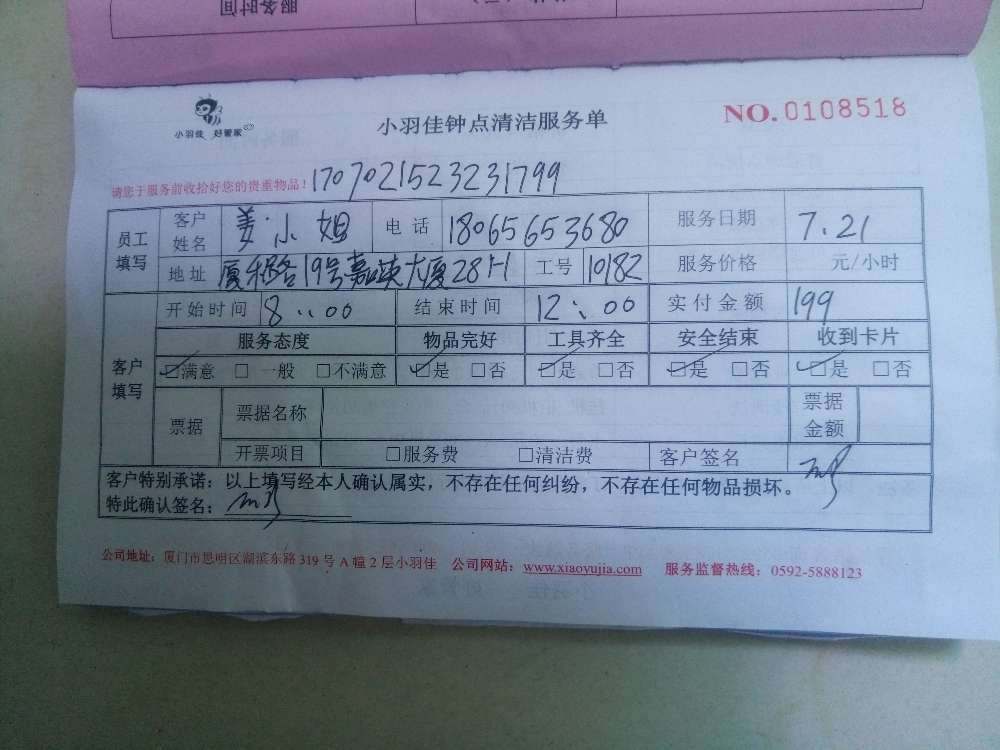 服务时间
小羽佳 好管家
小羽佳钟点清洁服务单
NO.0108518
请您于服务前收拾好您的贵重物品！1707021523231799
员工填写 客户姓名 姜小姐 电话 18065653680 服务日期 7.21
地址 厦禾路19号嘉英大厦28H 工号 10182 服务价格 元/小时
客户填写 开始时间 8:00 结束时间 12:00 实付金额 199
服务态度 物品完好 工具齐全 安全结束 收到卡片
☑满意 □一般 □不满意 ☑是 □否 ☑是 □否 ☑是 □否 ☑是 □否
票据 票据名称 票据金额
开票项目 □服务费 □清洁费 客户签名
客户特别承诺：以上填写经本人确认属实，不存在任何纠纷，不存在任何物品损坏。
特此确认签名：
公司地址：厦门市思明区湖滨东路319号A幢2层小羽佳 公司网站：www.xiaoyujia.com 服务监督热线：0592-5888123